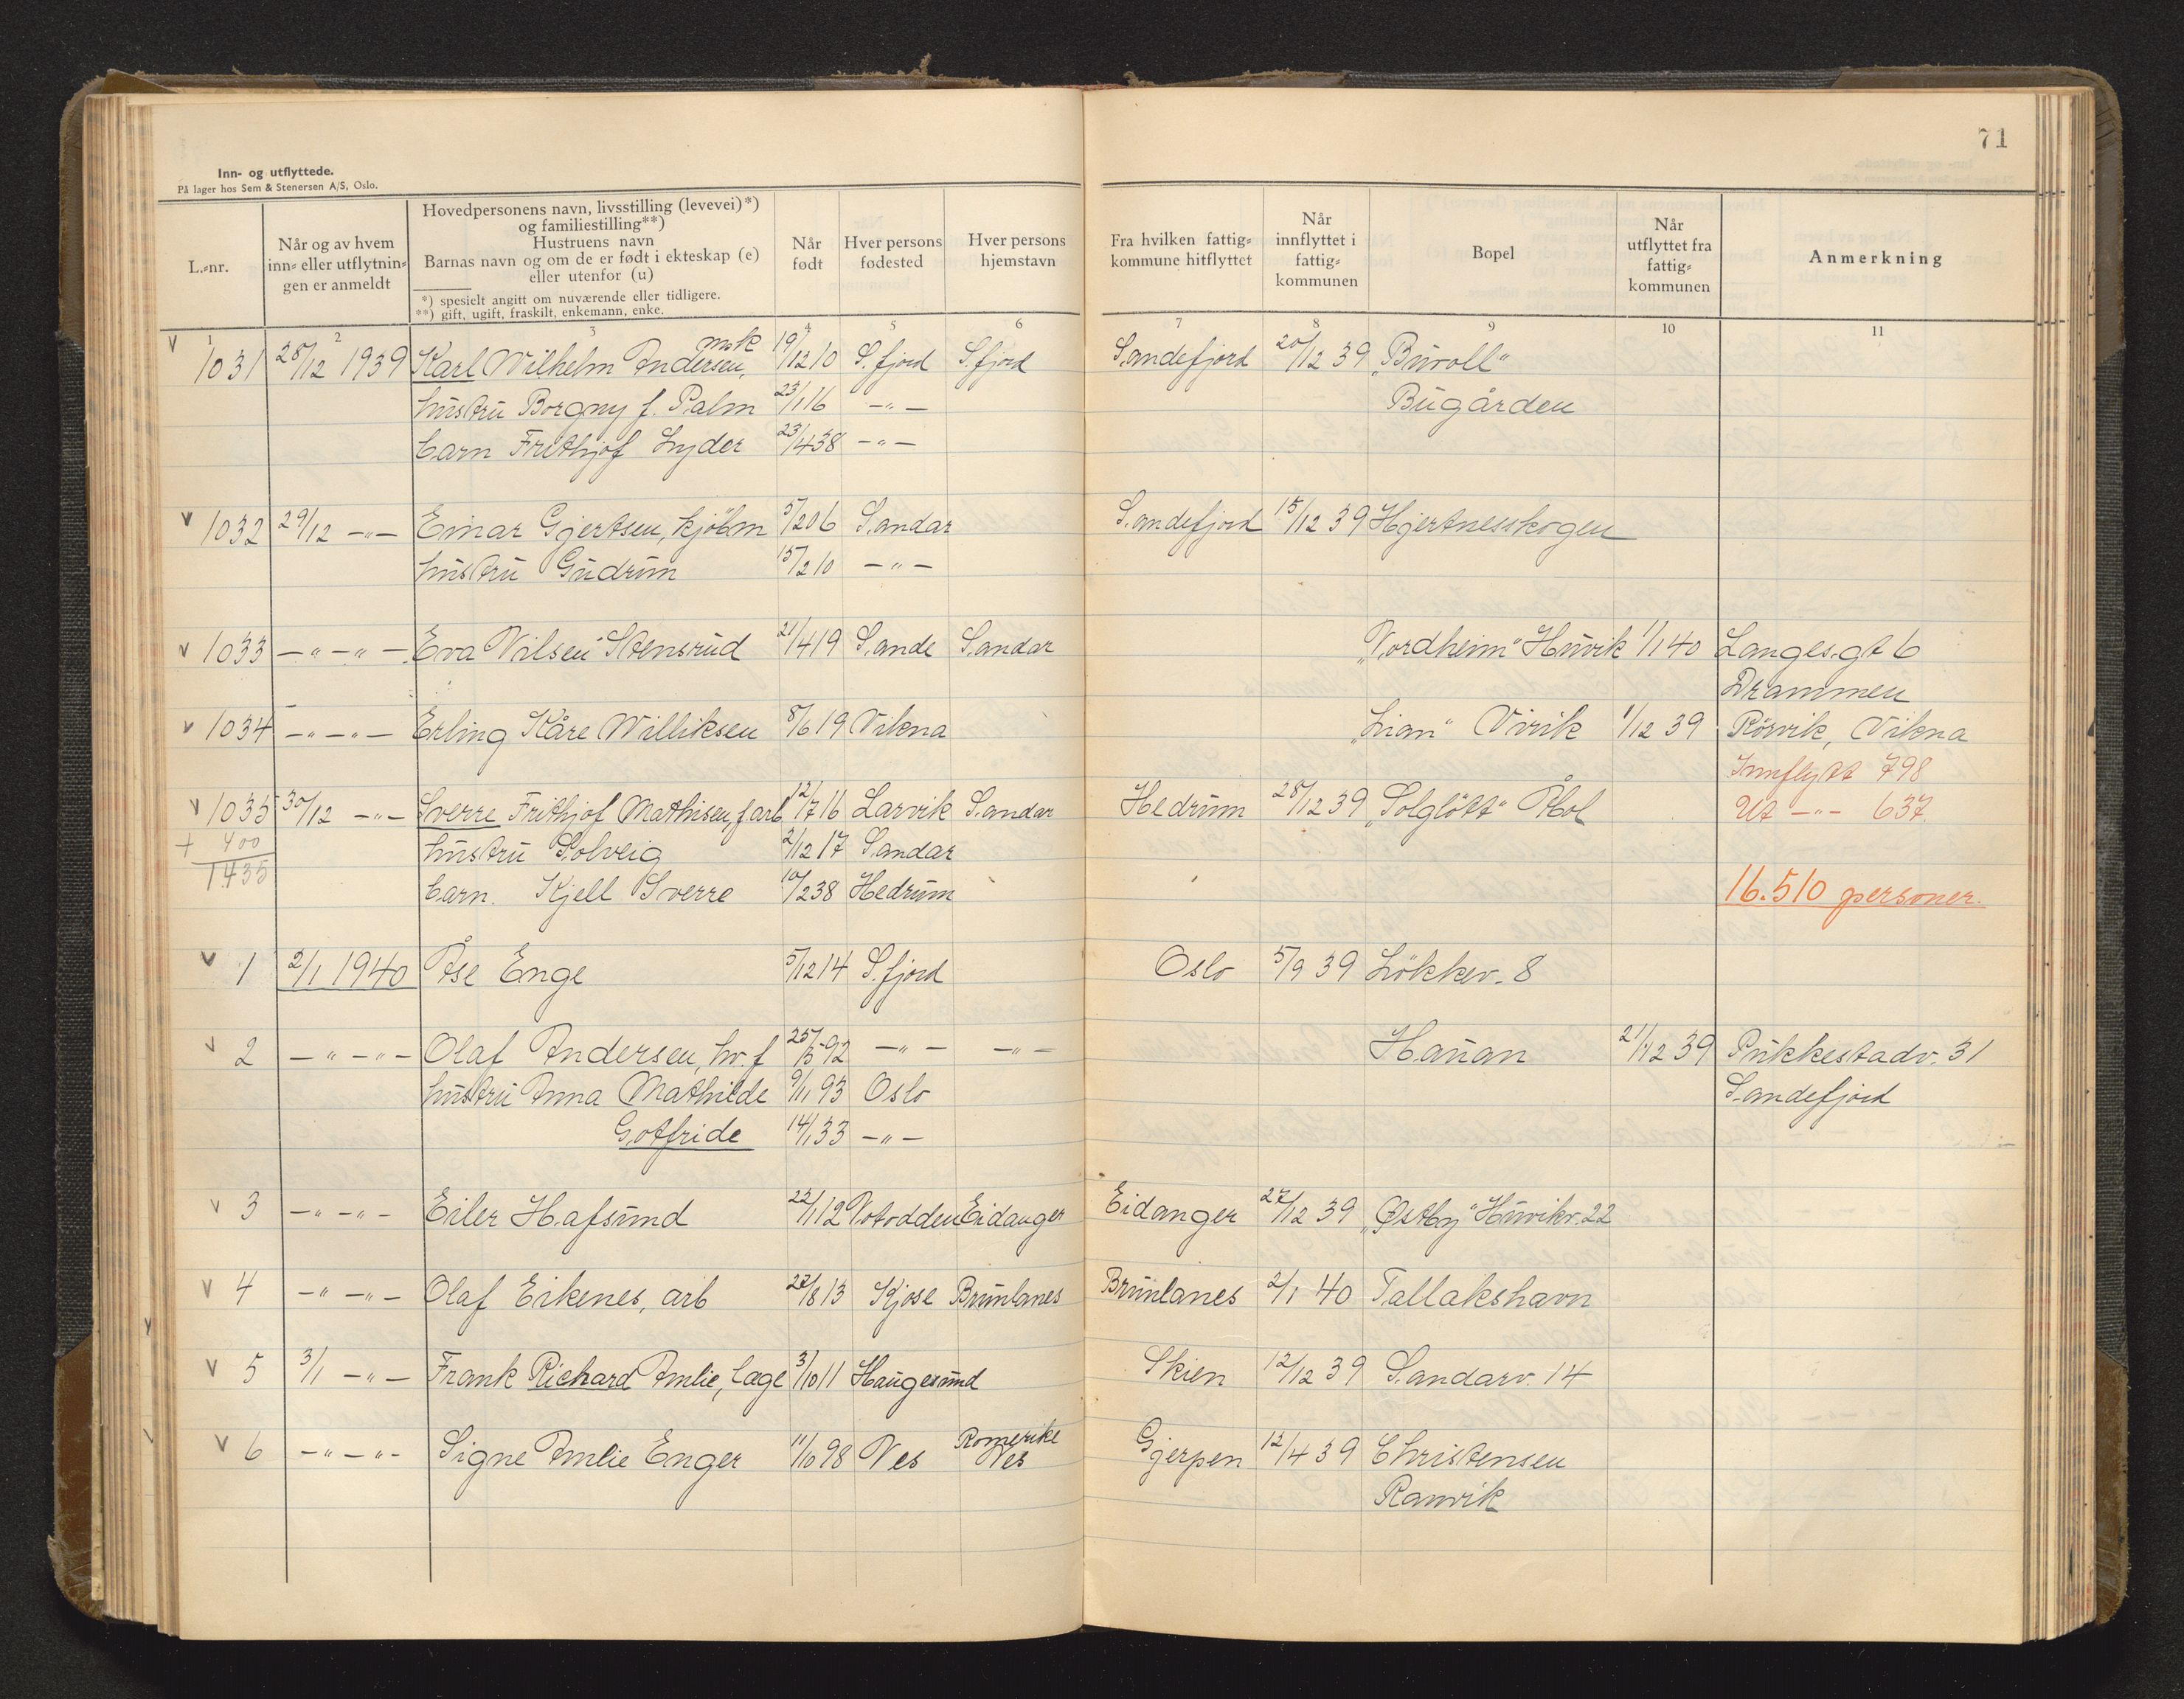 71
Inn- og utflyttede.
På lager hos Sem & Stenersen A/S, Oslo.
L.-nr.
Når og av hvem inn- eller utflytningen er anmeldt
Hovedpersonens navn, livsstilling (levevei)*) og familiestilling**)
Hustruens navn
Barnas navn og om de er født i ekteskap (e) eller utenfor (u)
*) spesielt angitt om nuværende eller tidligere.
**) gift, ugift, fraskilt, enkemann, enke.
Når født
Hver persons fødested
Hver persons hjemstavn
Fra hvilken fattig-kommune hitflyttet
Når innflyttet i fattig-kommunen
Bopel
Når utflyttet fra fattig-kommunen
Anmerkning
1 2 3 4 5 6 7 8 9 10 11
v 1031 28/12 1939 Karl Wilhelm Andersen, msk 19/12 10 S.fjord S.fjord Sandefjord 20/12 39 "Buvoll"
hustru Borgny f. Palm 23/1 16 -"- Bugården
barn Frithjof Lyder 23/4 38 -"-
v 1032 29/12 -"- Einar Gjertsen, kjøbm 5/2 06 Sandar Sandefjord 15/12 39 Hjertneskogen
hustru Gudrun 15/2 10 -"-
v 1033 -"-"- Eva Nilsen Stensrud 21/4 19 Sande Sandar "Nordheim" Huvik 1/1 40 Langes.gt 6
Drammen
v 1034 -"-"- Erling Kåre Williksen 8/6 19 Vikna "Lian" Virik 1/12 39 Rösvik, Vikna
Innflytt 798
v 1035 30/12 -"- Sverre Frithjof Mathisen, f.arb 12/7 16 Larvik Sandar Hedrum 28/12 39 "Solglött" Åbol Ut -"- 637
+ 400 hustru Solveig 2/12 17 Sandar
1435 barn. Kjell Sverre 10/2 38 Hedrum 16.510 personer.
v 1 2/1 1940 Åse Enge 5/12 14 S.fjord Oslo 5/9 39 Lökkev. 8
v 2 -"-"- Olaf Andersen, hv.f 25/5-92 -"- -"- Hauan 21/12 39 Pukkestadv. 31
hustru Anna Mathilde 9/1 93 Oslo Sandefjord
Gotfride 14/1 33 -"-
v 3 -"-"- Eiler Hafsund 22/1 12 Notodden Eidanger Eidanger 27/12 39 "Østby" Huvikv. 22
v 4 -"-"- Olaf Eikenes, arb 27/8 13 Kjose Brunlanes Brunlanes 2/1 40 Tallakshavn
v 5 3/1 -"- Frank Richard Amlie, lage 3/10 11 Haugesund Skien 12/12 39 Sandarv. 14
v 6 -"-"- Signe Amlie Enger 11/10 98 Nes Romerike Nes Gjerpen 12/4 39 Christensen
Ranvik